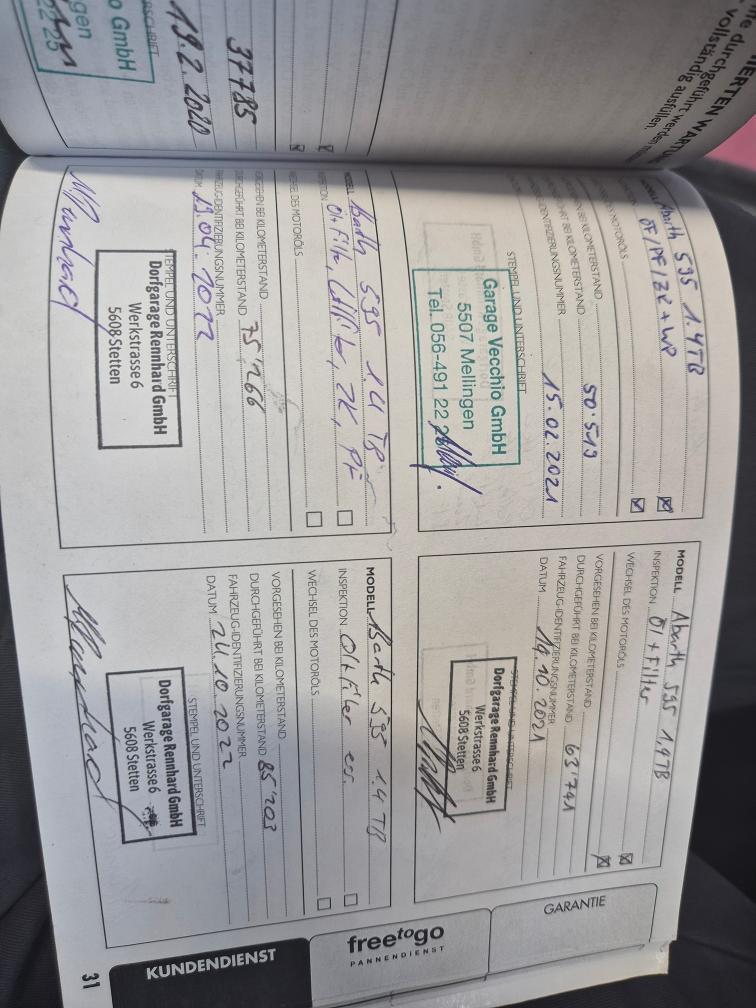 IERTEN WARTU
durchgeführt werden
vollständig ausfüllen.
37785
19.2.2020
GmbH
gen
22 25
Abarth 595 1.4TB
ÖF/PF/ZK + WP
WECHSEL DES MOTORÖLS
VORGESEHEN BEI KILOMETERSTAND
DURCHGEFÜHRT BEI KILOMETERSTAND 50.519
FAHRZEUG-IDENTIFIZIERUNGSNUMMER
15.02.2021
STEMPEL UND UNTERSCHRIFT
Garage Vecchio GmbH
5507 Mellingen
Tel. 056-491 22 25
MODELL Abarth 595 1.4TB
INSPEKTION Öl + Filter
WECHSEL DES MOTORÖLS
VORGESEHEN BEI KILOMETERSTAND
DURCHGEFÜHRT BEI KILOMETERSTAND 63'741
FAHRZEUG-IDENTIFIZIERUNGSNUMMER
DATUM 19.10.2021
STEMPEL UND UNTERSCHRIFT
Dorfgarage Rennhard GmbH
Werkstrasse 6
5608 Stetten
MODELL Abarth 595 1.4 TB
INSPEKTION Öl+Filter, Luftfilter, ZK, PF
WECHSEL DES MOTORÖLS
VORGESEHEN BEI KILOMETERSTAND
DURCHGEFÜHRT BEI KILOMETERSTAND 75'266
FAHRZEUG-IDENTIFIZIERUNGSNUMMER
DATUM 19.04.2022
STEMPEL UND UNTERSCHRIFT
Dorfgarage Rennhard GmbH
Werkstrasse 6
5608 Stetten
MODELL Abarth 595 1.4 TB
INSPEKTION Öl+Filter ers.
WECHSEL DES MOTORÖLS
VORGESEHEN BEI KILOMETERSTAND
DURCHGEFÜHRT BEI KILOMETERSTAND 85'203
FAHRZEUG-IDENTIFIZIERUNGSNUMMER
DATUM 24.10.2022
STEMPEL UND UNTERSCHRIFT
Dorfgarage Rennhard GmbH
Werkstrasse 6
5608 Stetten
GARANTIE
freetogo
PANNENDIENST
KUNDENDIENST
31